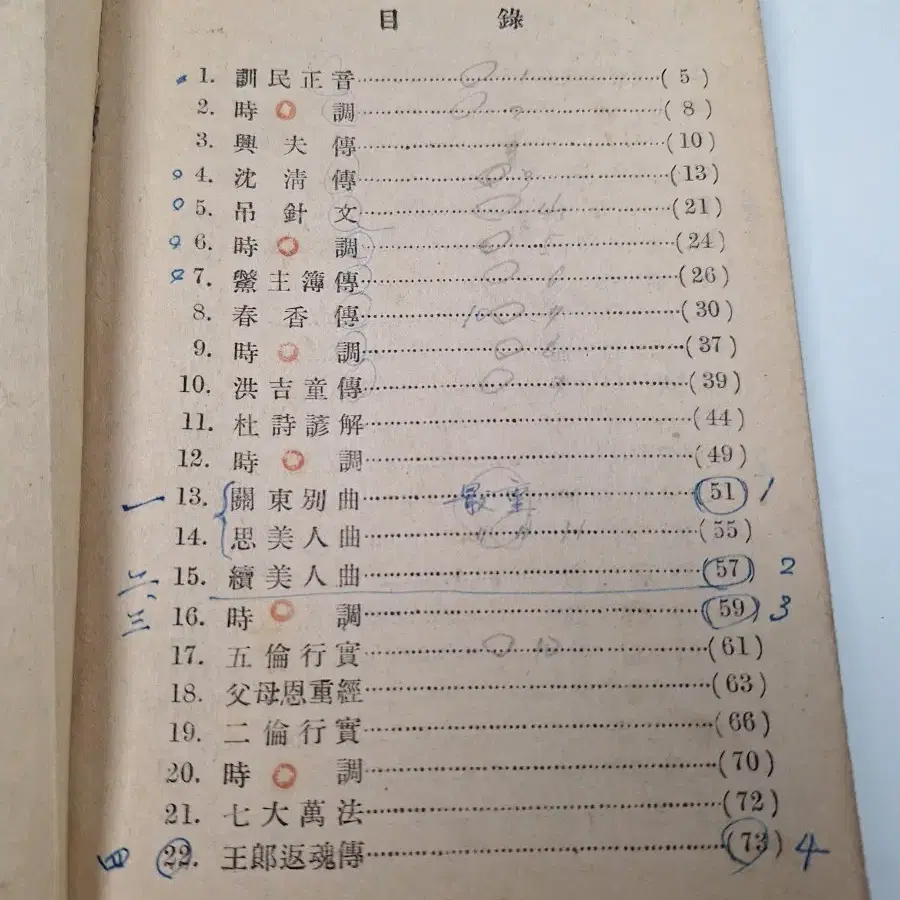 目 錄
1. 訓民正音 (5)
2. 時調 (8)
3. 興夫傳 (10)
4. 沈淸傳 (13)
5. 吊針文 (21)
6. 時調 (24)
7. 鱉主簿傳 (26)
8. 春香傳 (30)
9. 時調 (37)
10. 洪吉童傳 (39)
11. 杜詩諺解 (44)
12. 時調 (49)
一 13. 關東別曲 (51) 1
14. 思美人曲 (55)
二、 15. 續美人曲 (57) 2
三 16. 時調 (59) 3
17. 五倫行實 (61)
18. 父母恩重經 (63)
19. 二倫行實 (66)
20. 時調 (70)
21. 七大萬法 (72)
四 22. 王郞返魂傳 (73) 4